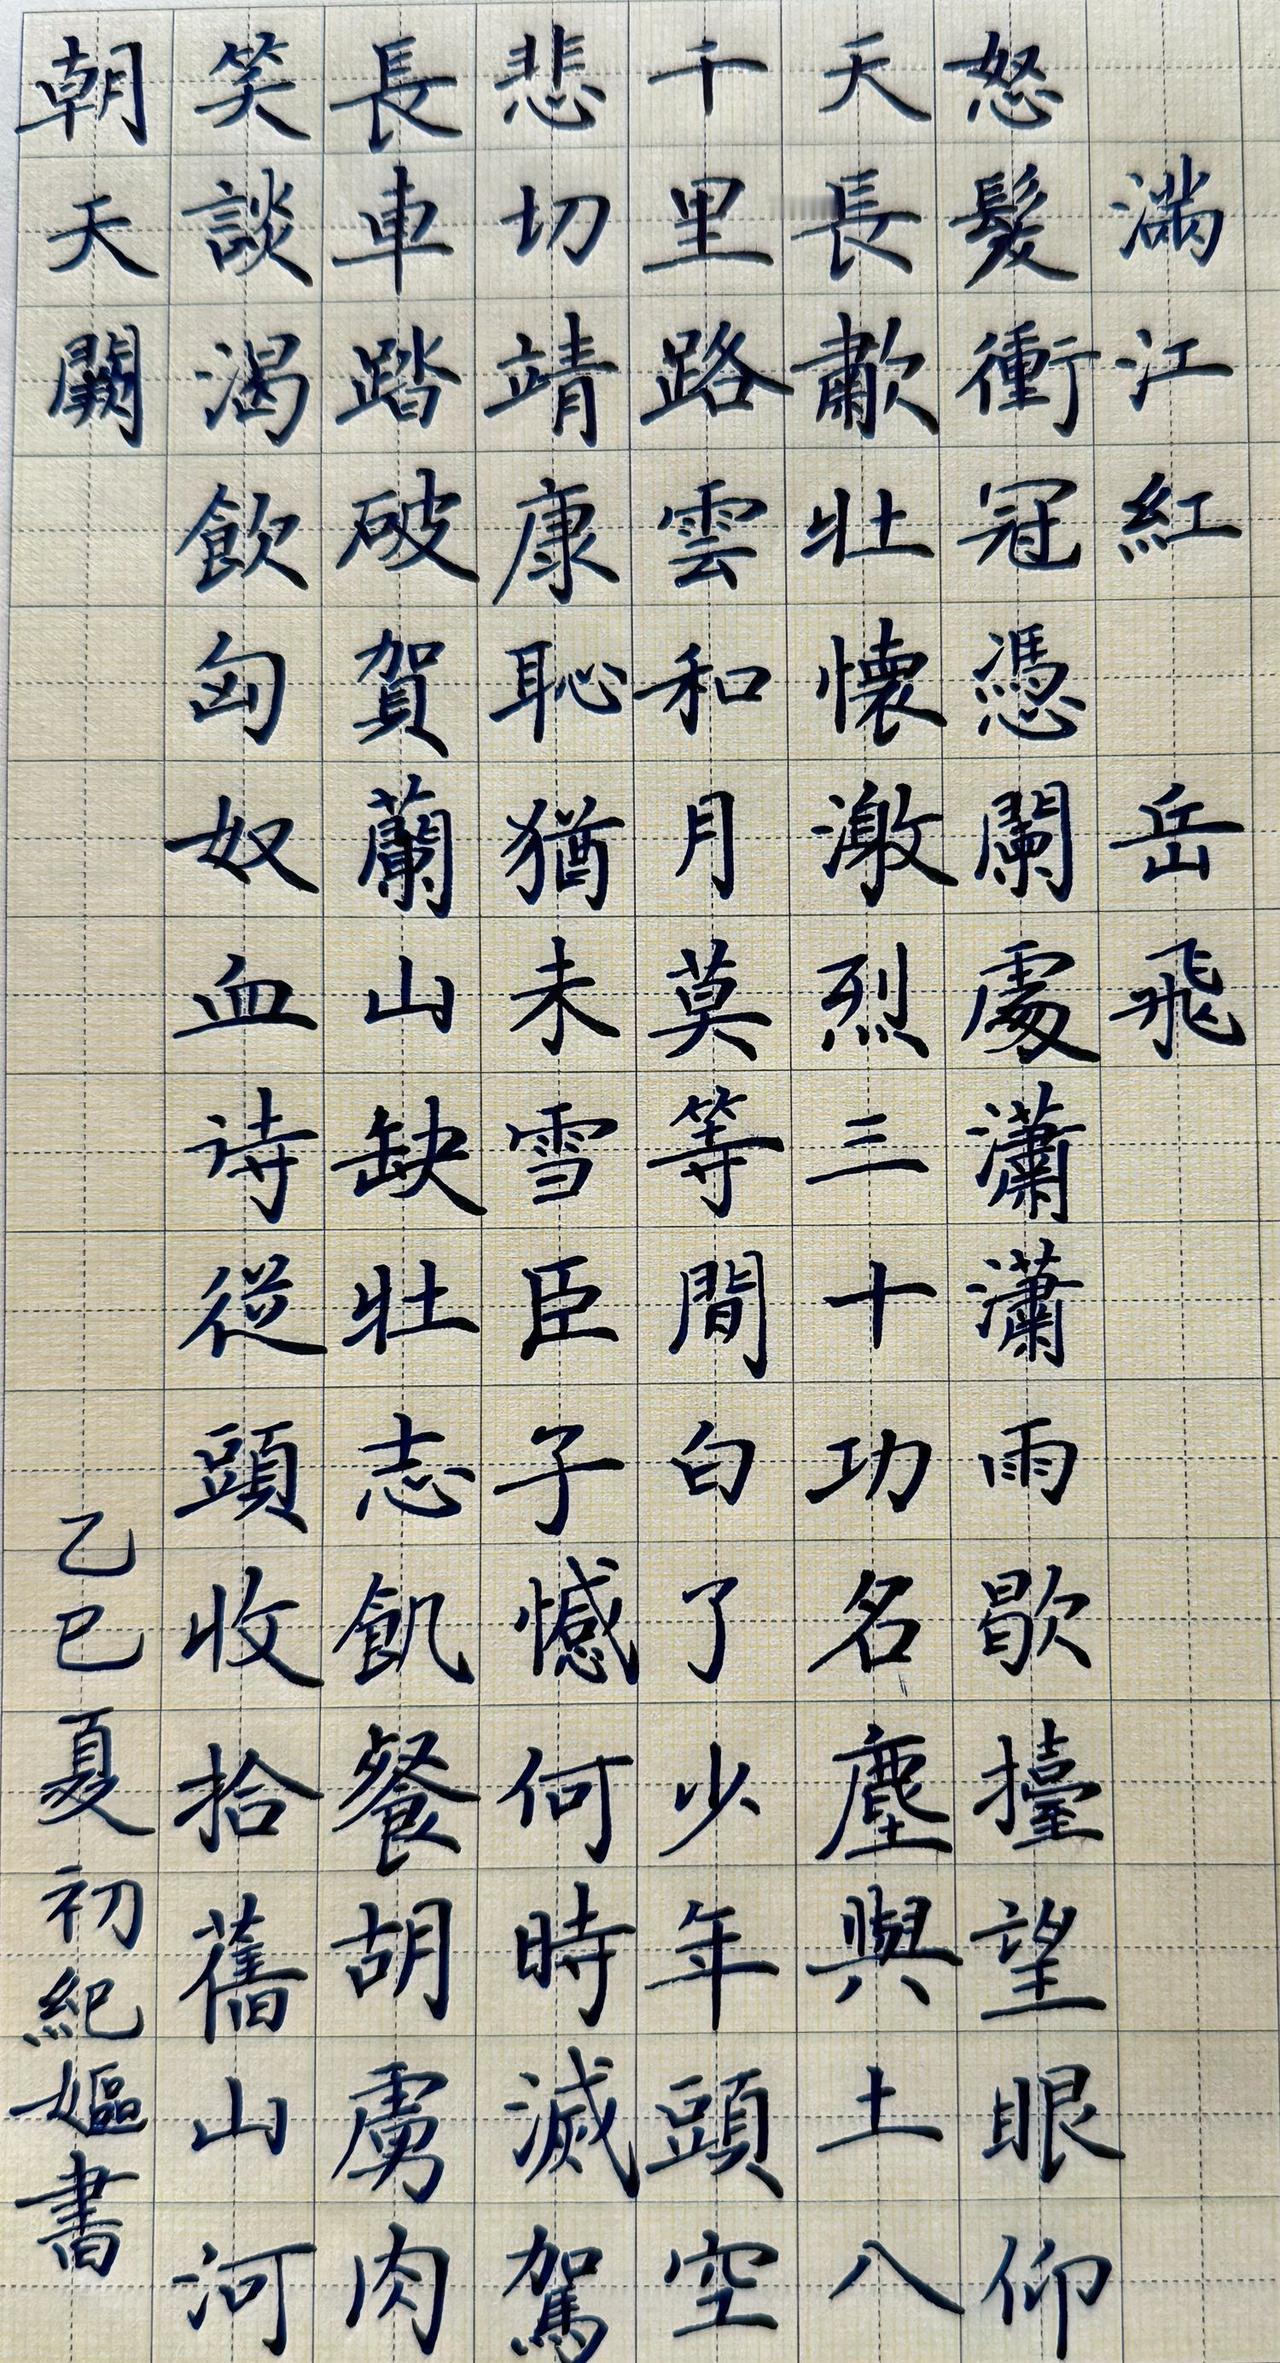 滿江紅 岳飛
怒髮衝冠憑闌處瀟瀟雨歇擡望眼仰
天長歗壯懷激烈三十功名塵與土八
千里路雲和月莫等閒白了少年頭空
悲切靖康恥猶未雪臣子憾何時滅駕
長車踏破賀蘭山缺壯志飢餐胡虜肉
笑談渴飲匈奴血诗從頭收拾舊山河
朝天闕
乙巳夏初紀嫗書